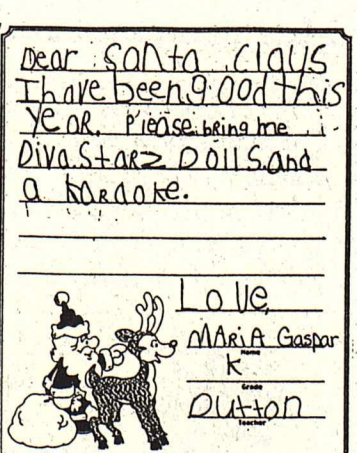 Dear Santa Claus
I have been good this
YeaR. Please bRing me
Diva StarZ Dolls.and
a kaRaoke.
Love,
MARiA Gaspar
Name
K
Grade
Dutton
Teacher